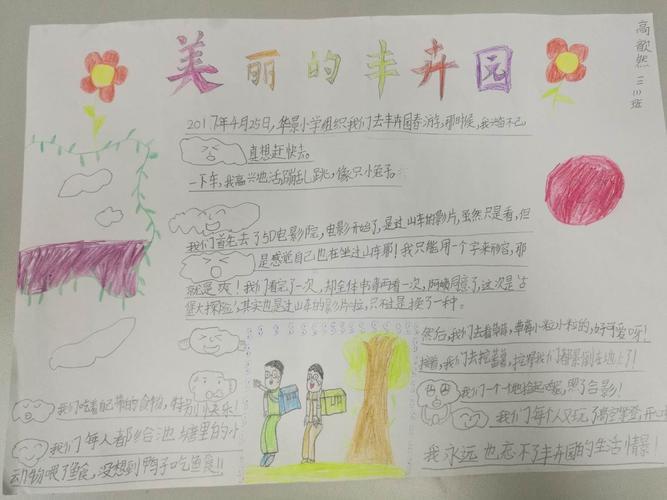 美丽的丰卉园
高歆然 三(1)班
2017年4月25日,华景小学组织我们去丰卉园春游,那时候,我迫不已
真想赶快去。
一下车,我高兴地活蹦乱跳,像只小兔子。
我们首先去了5D电影院,电影开始了,是过山车的影片,虽然只是看,但
是感觉自己也在坐过山车耶!我只能用一个字来形容,那
就是爽!我们看完了一次,却全体书薄再看一次,阿姨同意了,这次是"古
堡大探险",其实也是过山车的影片啦,只不过是换了一种。
然后,我们去看草莓,草莓小粒小粒的,好可爱呀!
接着,我们去挖番薯,挖得我们都累倒在地上了!
我们一个个地拾起
照了合影!
我们每个人又玩了
我永远也忘不了丰卉园的生活情景
我们吃着自己带的食物,特别
乐!
我们每人都给池塘里的小
动物喂了鱼食,没想到鸭子吃鱼食!!